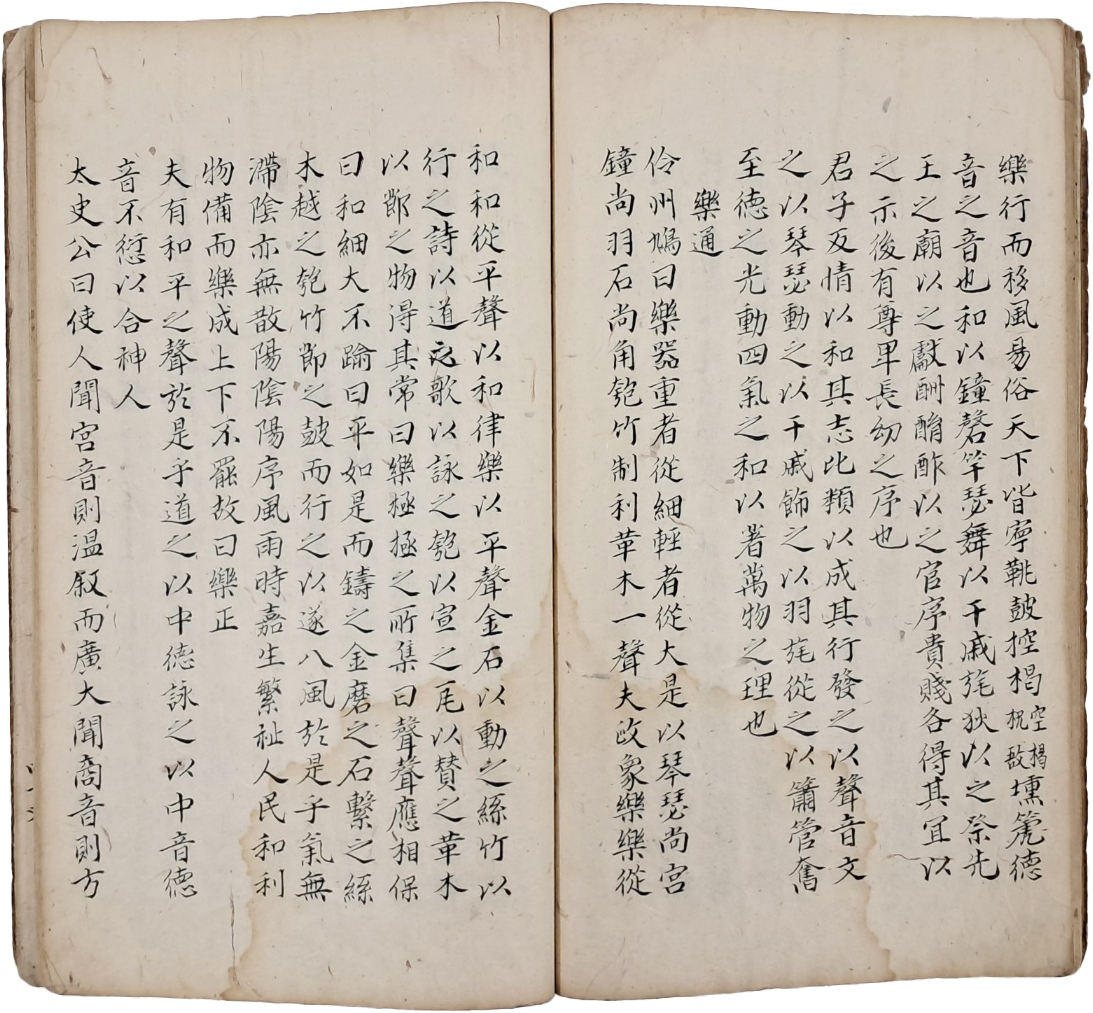 樂行而移風易俗天下皆寧鞉鼓控楬空楬柷敔壎箎德
音之音也和以鐘磬竽瑟舞以干戚旄狄以之祭先
王之廟以之獻酬酳酢以之官序貴賤各得其宜以
之示後有尊卑長幼之序也
君子反情以和其志比類以成其行發之以聲音文
之以琴瑟動之以干戚飾之以羽旄從之以簫管奮
至德之光動四氣之和以著萬物之理也
樂通
伶州鳩曰樂器重者從細輕者從大是以琴瑟尚宮
鐘尚羽石尚角匏竹制利革木一聲夫政象樂樂從
和和從平聲以和律樂以平聲金石以動之絲竹以
行之詩以道之歌以詠之匏以宣之瓦以贊之革木
以節之物得其常曰樂極極之所集曰聲聲應相保
曰和細大不踰曰平如是而鑄之金磨之石繫之絲
木越之匏竹節之鼓而行之以遂八風於是乎氣無
滯陰亦無散陽陰陽序風雨時嘉生繁祉人民和利
物備而樂成上下不罷故曰樂正
夫有和平之聲於是乎道之以中德詠之以中音德
音不愆以合神人
太史公曰使人聞宮音則溫叙而廣大聞商音則方